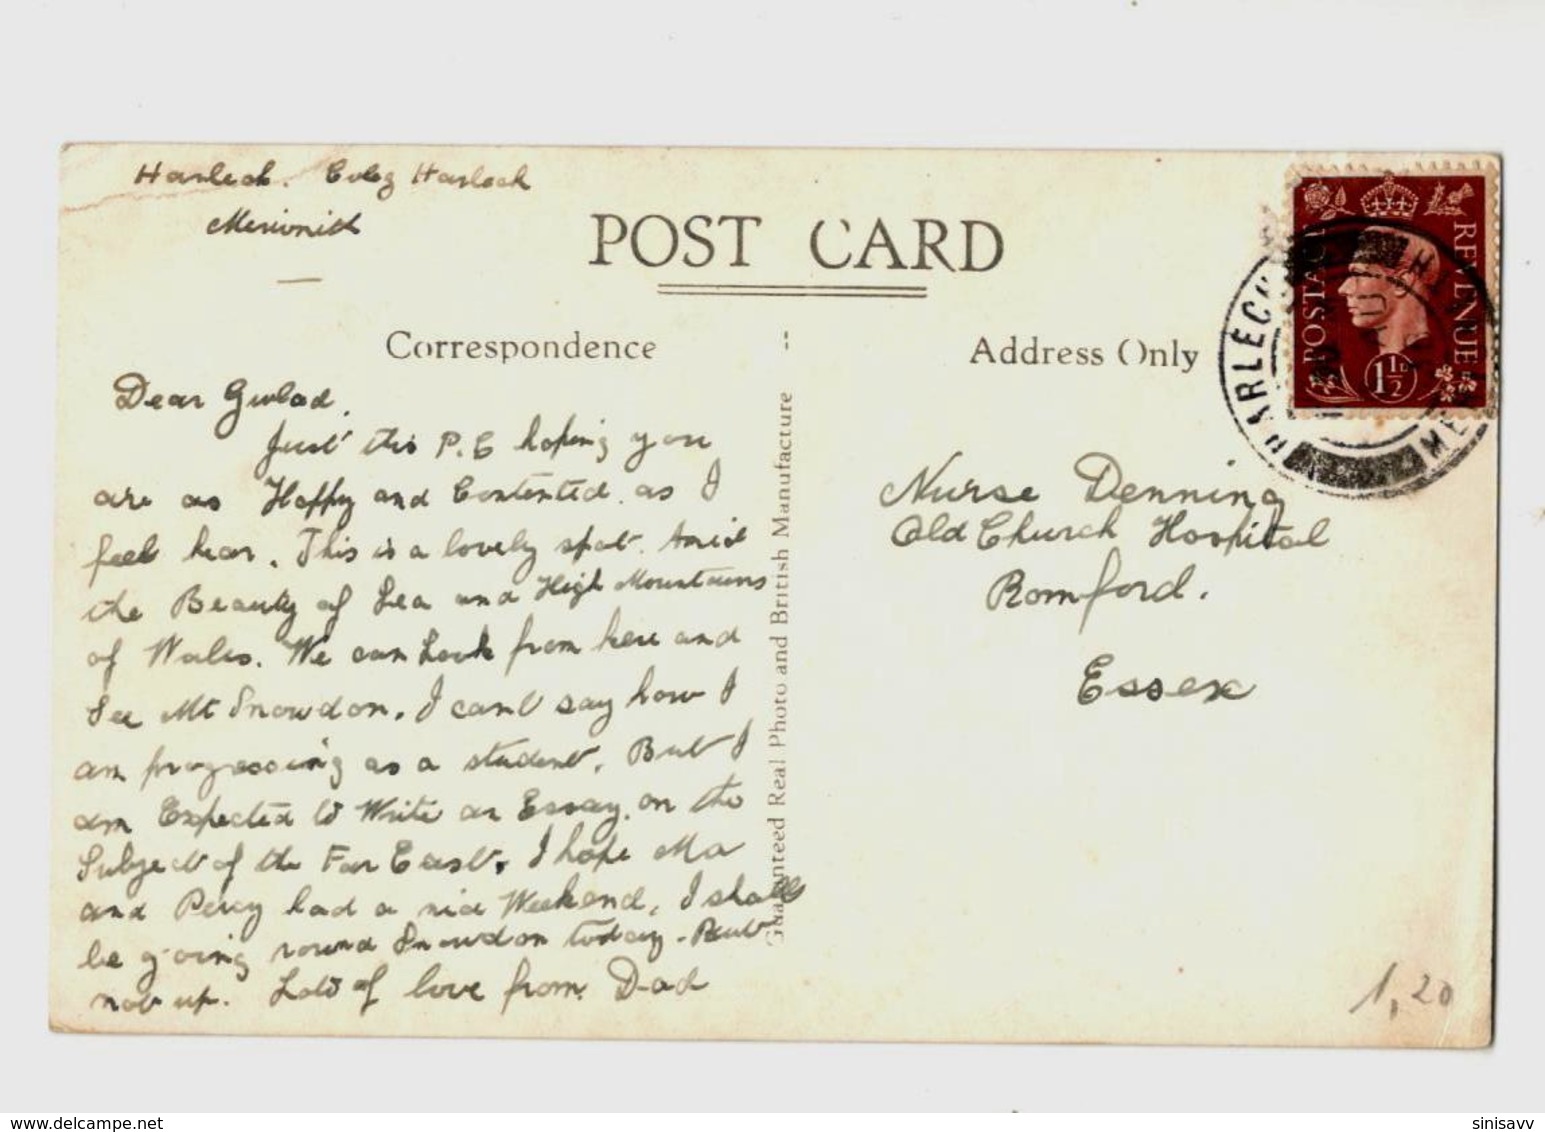 Harlech. Coleg Harlech
Merionith
POST CARD
Correspondence
Address Only
Dear Gwlad,
Just this P.C hoping you
are as Happy and Contented as I
feel hear. This is a lovely spot. Amid
the Beauty of Sea and High Mountains
of Wales. We can Look from here and
See Mt Snowdon. I cant say how I
am progressing as a student. But I
am Expected to Write an Essay on the
Subject of the Far East. I hope Ma
and Percy had a nice Weekend, I shall
be going round Snowdon today - But
not up. Lots of love from Dad
Guaranteed Real Photo and British Manufacture
POSTAGE REVENUE
1½D
HARLECH
MER
Nurse Denning
Old Church Hospital
Romford.
Essex
1,20
www.delcampe.net
sinisavv